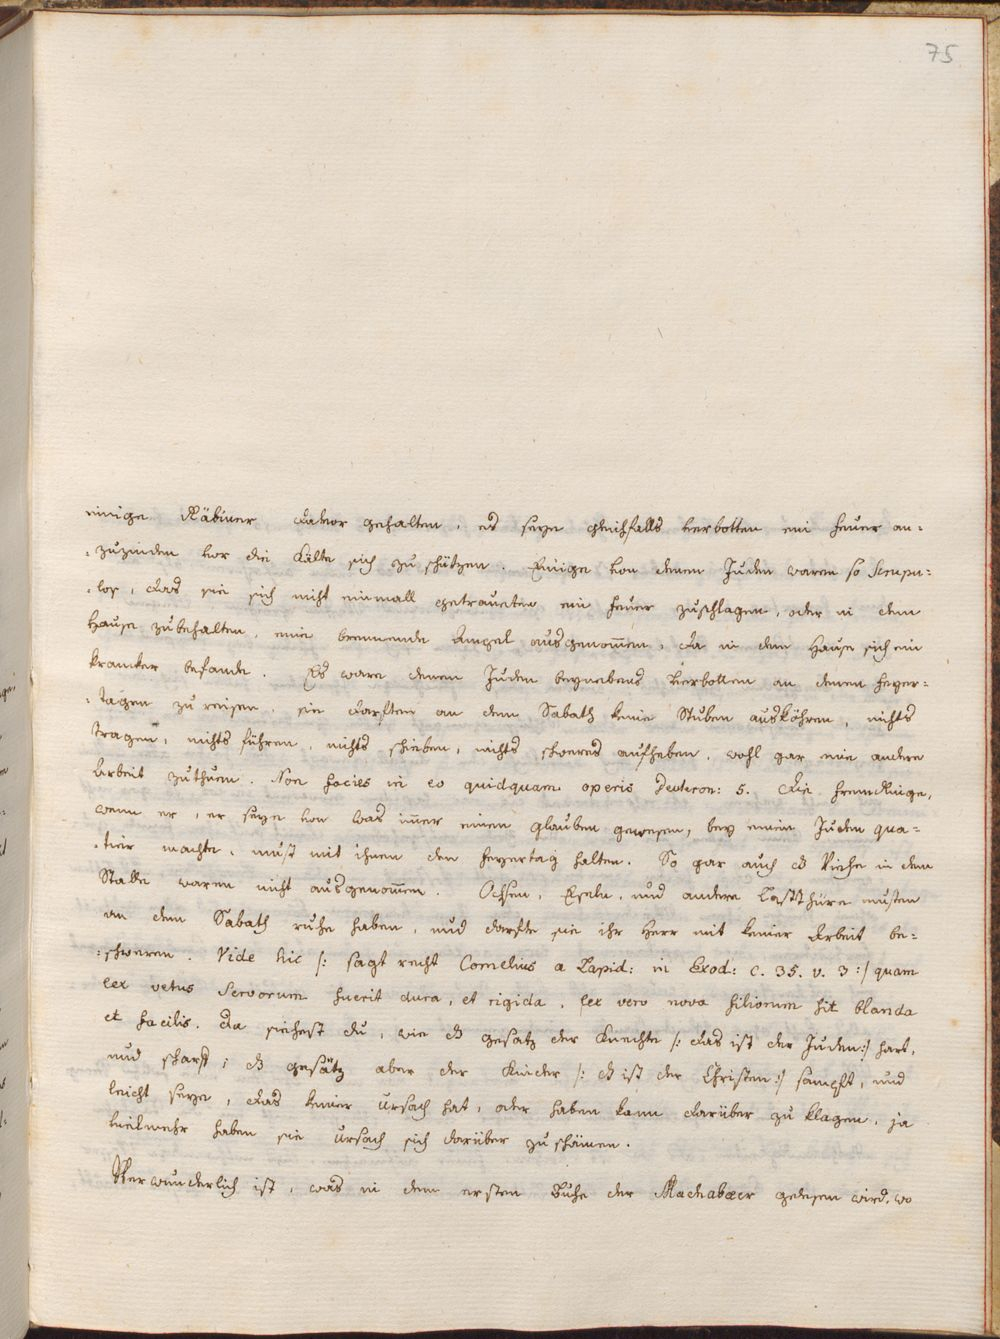 75
einige Räbiner darvor gehalten, es seye gleichfalls verbotten ein feuer an-
-zuzinden vor die Kälte sich zu schützen. Einige von denen Juden waren so scrupu-
-los, das sie sich nicht einmall getraueten ein feuer zuschlagen, oder in dem
Hause zubehalten, eine brennende Ampel ausgenom̄en, da in dem Hause sich ein
Krancker befande. Es ware denen Juden beynebens verbotten an denen feyer-
-tägen zu reisen, sie darften an dem Sabath keine Stuben ausköhren, nichts
tragen, nichts führen, nichts schieben, nichts schweres aufheben, wohl gar eine andere
Arbeit zuthuen. Non facies in eo quidquam operis Deuteron: 5. Die fremdlinge,
wenn er, er seye von was im̄er einen glauben gewesen, bey einem Juden qua-
-tier machte, must mit ihnen den feyertag halten. So gar auch ds Viehe in dem
Stalle waren nicht ausgenom̄en. Ochsen, Eseln, und andere Lastthüre musten
an dem Sabath ruhe haben, und dorfte sie ihr Herr mit keiner Arbeit be-
-schweren. Vide hic /: sagt recht Cornelius a Lapid: in Exod: c. 35. v. 3 :/ quam
lex vetus servorum fuerit dura, et rigida, lex vero nova filiorum sit blanda
et facilis. Da siehest du, wie ds gesatz der Knechte /: das ist der Juden :/ hart,
und scharf; ds gesätz aber der Kinder /: ds ist der Christen :/ sanfft, und
leicht seye, das keiner ursach hat, oder haben kann darüber zu klagen, ja
vielmehr haben sie ursach sich darüber zu schämen.
Verwunderlich ist, was in dem ersten Buche der Machabæer gelesen wird, wo